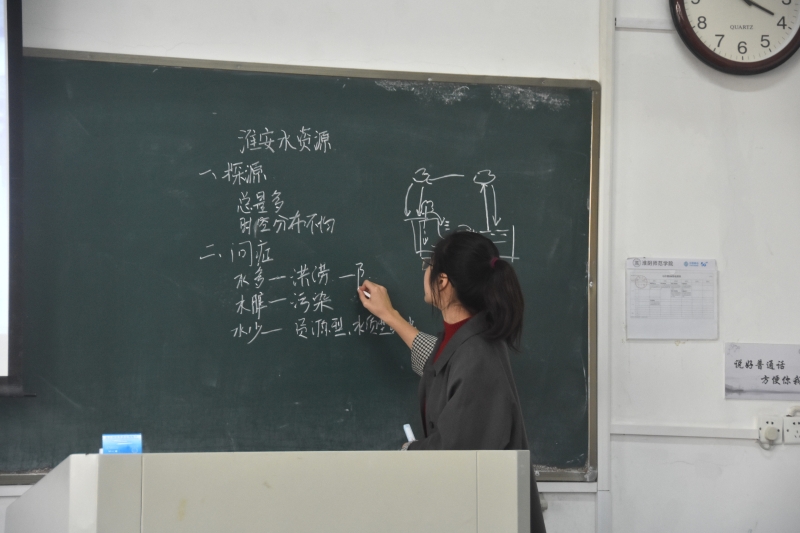 淮安水资源
一、探源
总量多
时空分布不均
二、问症
水多一洪涝一
水脏一污染
水少一资源型、水质型
QUARTZ
8 7 6 5 4 3
说好普通话
方便你我